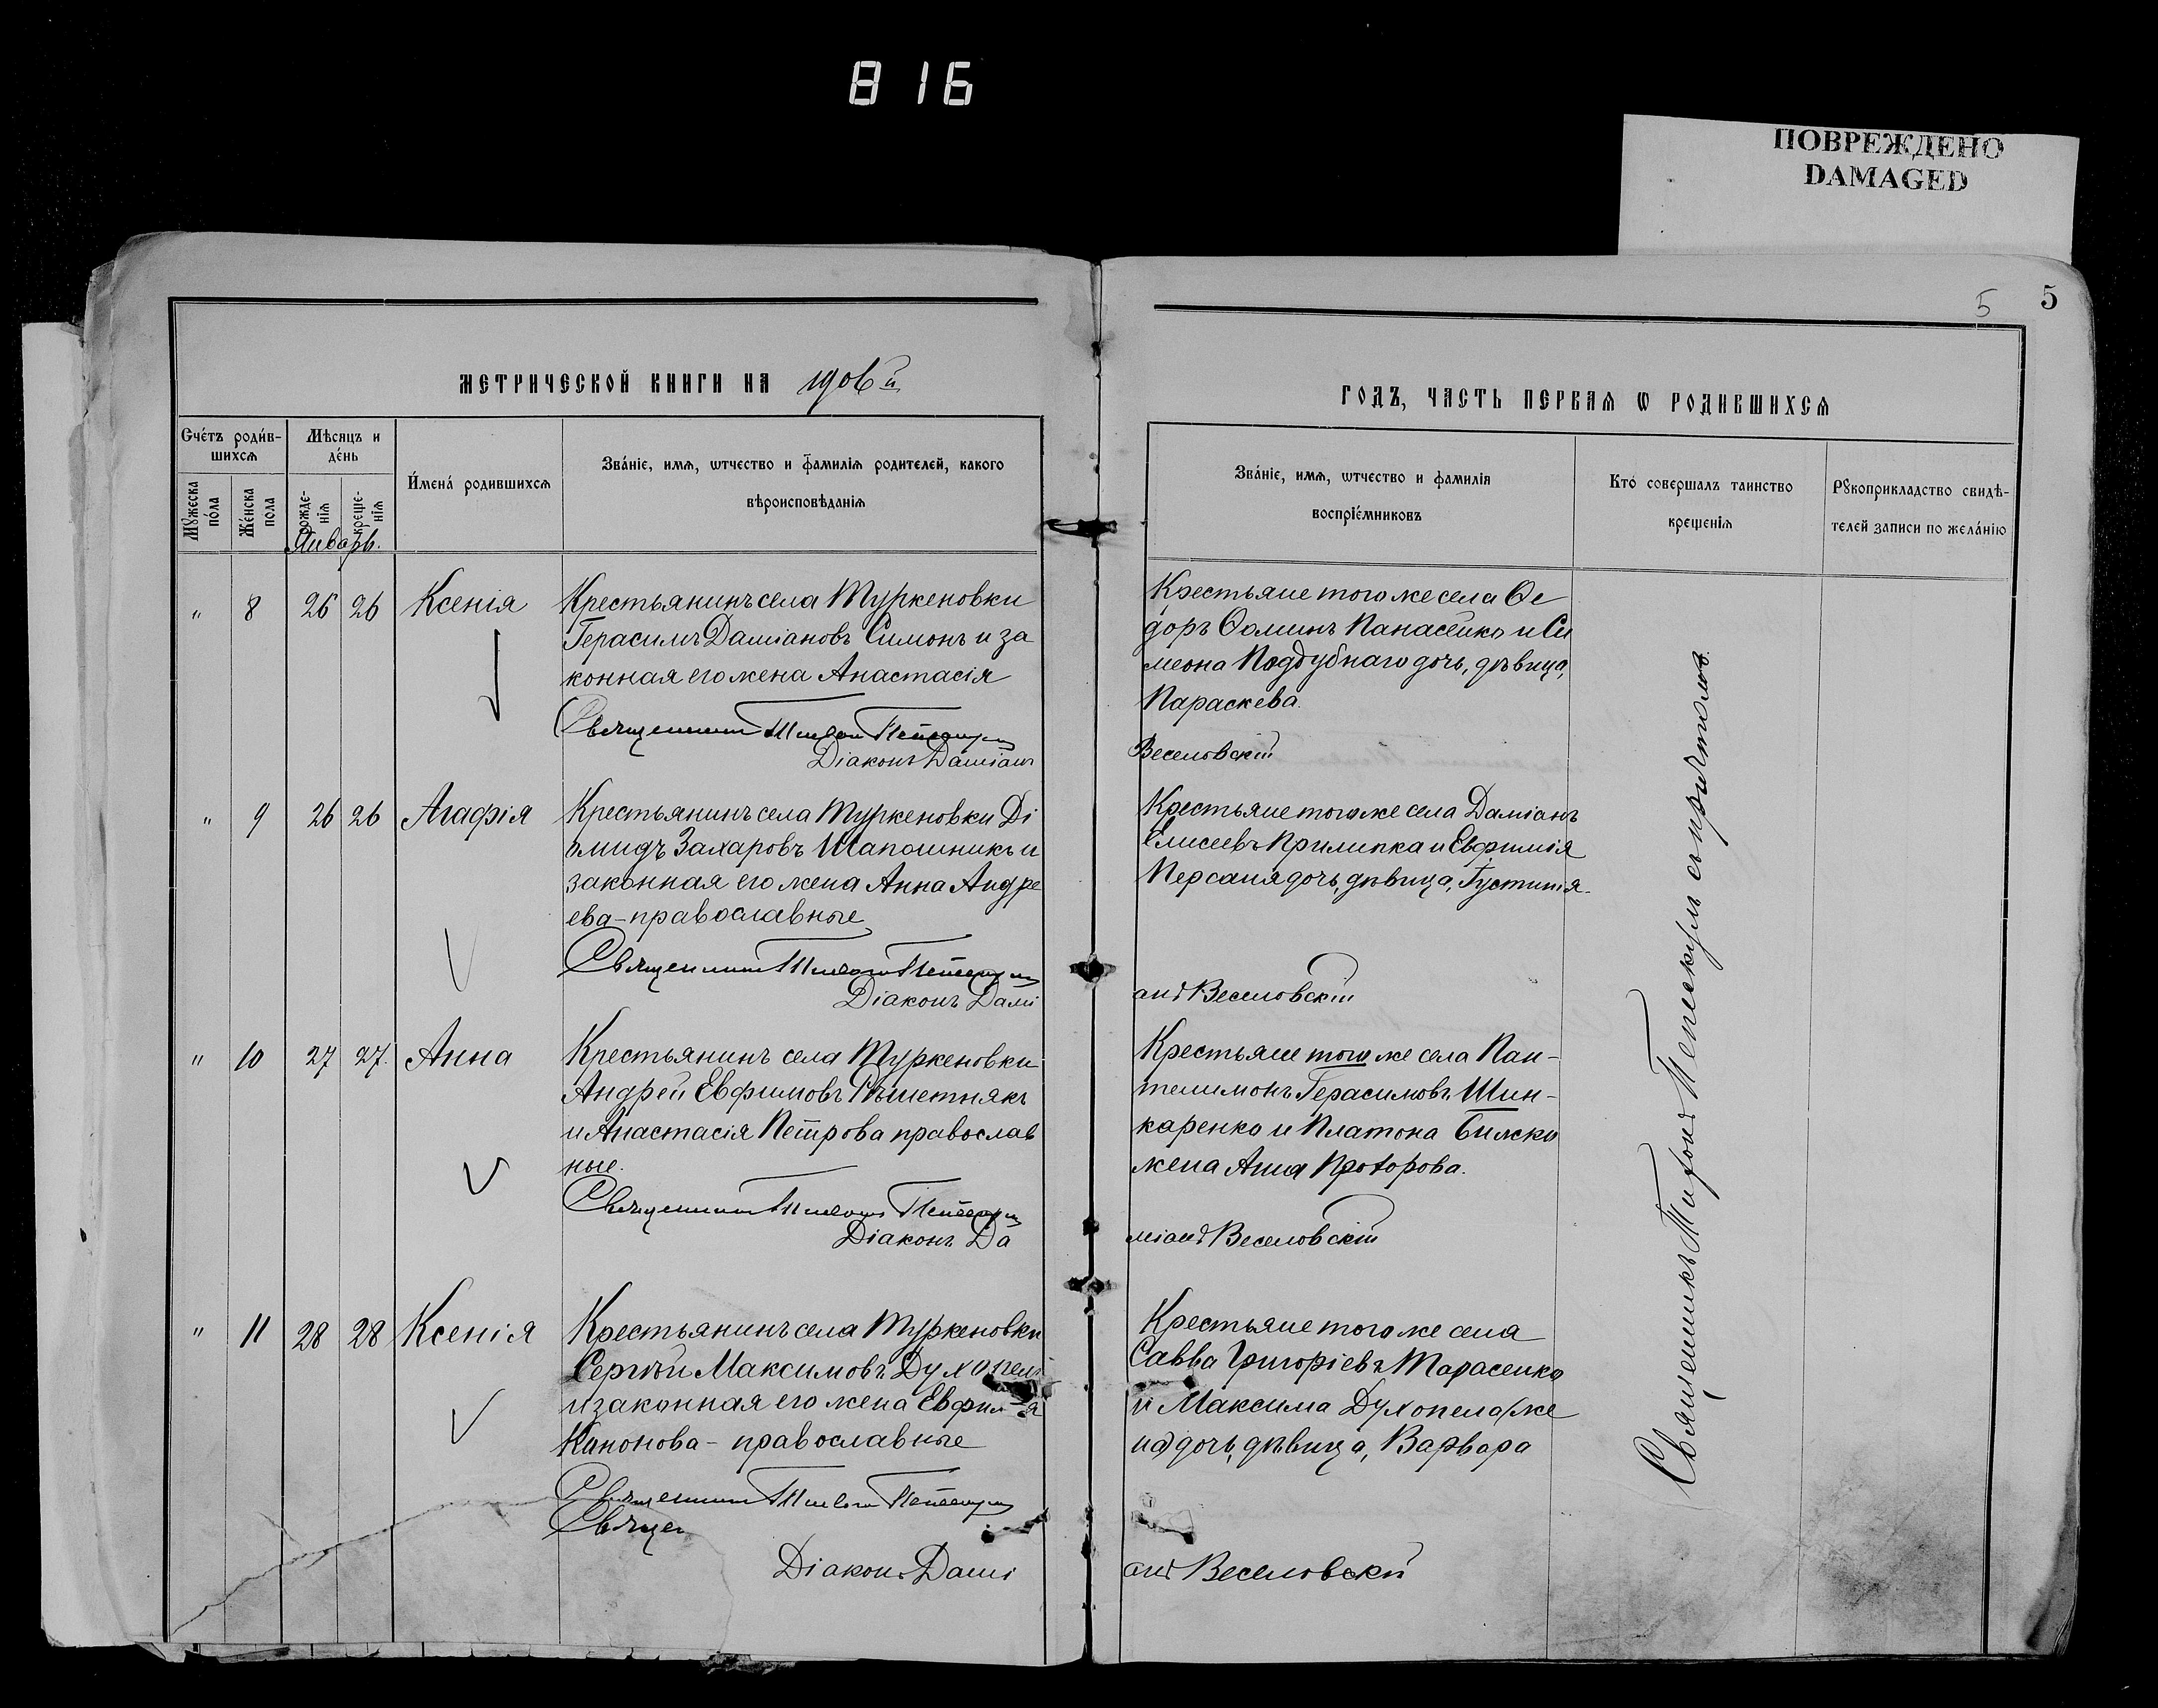 816
ПОВРЕЖДЕНО
DAMAGED
5 5
МЕТРИЧЕСКОЙ КНИГИ НА 1906й
ГОДЪ, ЧАСТЬ ПЕРВАѦ Ѡ РОДИВШИХСѦ
Счéтъ роди́в-
шихсѧ
Мꙋ́жеска по́ла
Же́нска пола
Мѣсяцъ и
дéнь
рожде-
нїѧ
креще-
нїѧ
Январь.
И́мена́ родившихсѧ
Звáнїе, имѧ, ѡтчество и фамилїѧ родителей, какого
вѣроисповѣданїѧ
Звáнїе, имѧ, ѡтчество и фамилїѧ
воспрїéмниковъ
Кто́ совершалъ таинство
крещенїѧ
Рꙋкоприкладство свидѣ-
телей записи по желáнїю
" 8 26 26 Ксенія
Крестьянинъ села Туркеновки
Герасимъ Даміановъ Симонъ и за
конная его жена Анастасія
Священникъ Тихонъ
Діаконъ Даміанъ
Крестьяне того же села Ѳе
доръ Ѳоминъ Панасенко и Си
меона Поддубнаго дочь, дѣвица,
Параскева.
Веселовскій
" 9 26 26 Агафія
Крестьянинъ села Туркеновки Ді
омидъ Захаровъ Шапошникъ и
законная его жена Анна Андре
ева-православные
Священникъ Тихонъ
Діаконъ Дамі
Крестьяне того же села Даміанъ
Елисеевъ Прилипка и Евфимія
Персаня дочь, дѣвица, Іустинія.
анъ Веселовскій
" 10 27 27. Анна
Крестьянинъ села Туркеновки
Андрей Евфимовъ Рѣшетнякъ
и Анастасія Петрова православ
ные.
Священникъ Тихонъ
Діаконъ Да
Крестьяне того же села Пан-
телимонъ Герасимовъ Шин-
каренко и Платона
жена Анна Прохорова.
міанъ Веселовскій
" 11 28 28 Ксенія
Крестьянинъ села Туркеновки
Сергѣй Максимовъ Духопел
и законная его жена Евфимія
Канонова - православные
Священникъ Тихонъ
Священ
Діаконъ Дамі
Крестьяне того же села
Савва Григоріевъ Тарасенко
и Максима Духопела /же
на/ дочь, дѣвица, Варвара
анъ Веселовскій
Священникъ Тихонъ съ причтомъ.